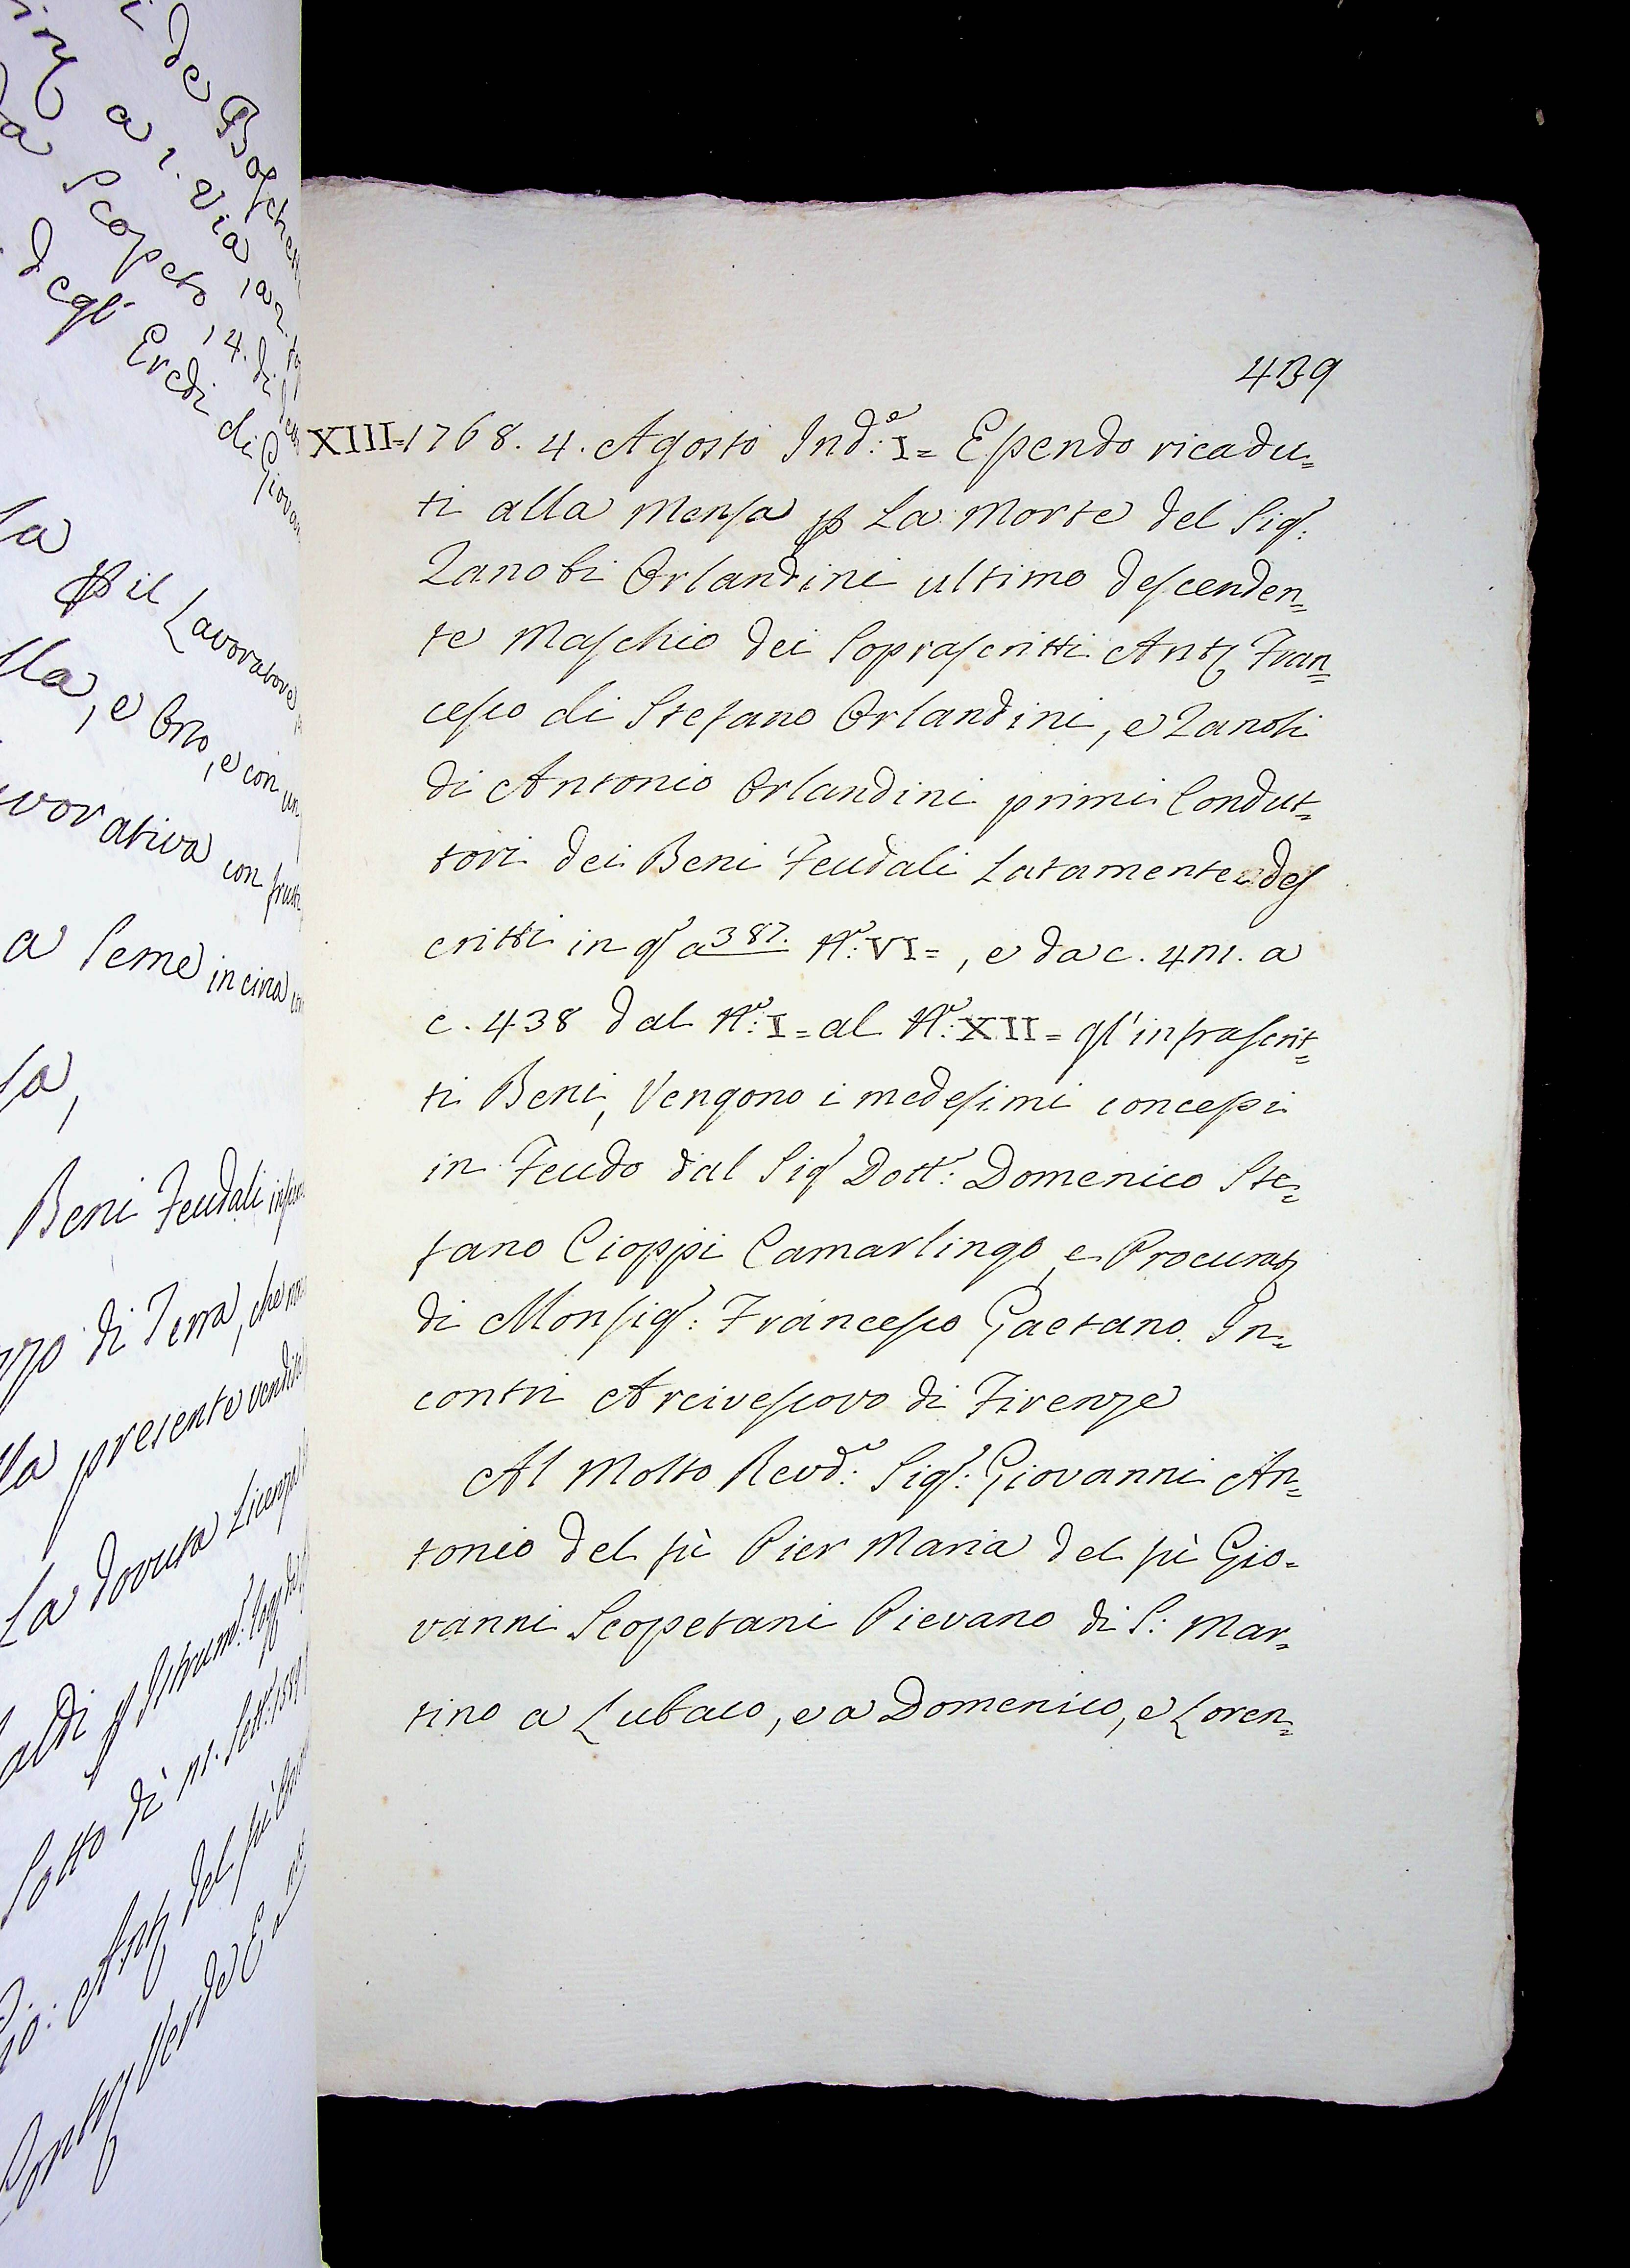 de Boschi
a 1. Via, a 2.
Scopeto, 4. di
degl' Eredi di Giovan
la
p il Lavoratore
lla, e Orto, e con un
vorativa con frutti
a Seme in circa
la,
Beni Feudali
zzo di Terra, che
lla presente vendita
La dovuta Licenza
p Istrum:
Sotto dì
Gio: Ant.º del fù
439
XIII=1768. 4. Agosto Ind.ᵉ: I= Essendo ricadu=
ti alla Mensa p La Morte del Sig.ʳ:
Zanobi Orlandini ultimo descenden=
te Maschio dei Soprascritti Ant.º Fran=
cesco di Stefano Orlandini, e Zanobi
di Antonio Orlandini primi Condut=
tori dei Beni Feudali Latamente des
critti in q.º a 387. N.º: VI=, e da c. 431. a
c. 438 dal N.º: I= al N.º: XII= gl' infrascrit=
ti Beni, Vengono i medesimi concessi
in Feudo dal Sig.ʳ Dott.ʳ: Domenico Ste=
fano Cioppi Camarlingo, e Procurat.ʳᵉ
di Monsig.ʳ: Francesco Gaetano In=
contri Arcivescovo di Firenze
Al Molto Revd.º: Sig.ʳ: Giovanni An=
tonio del fù Pier Maria del fù Gio=
vanni Scopetani Pievano di S: Mar=
tino a Lubaco, e a Domenico, e Loren=